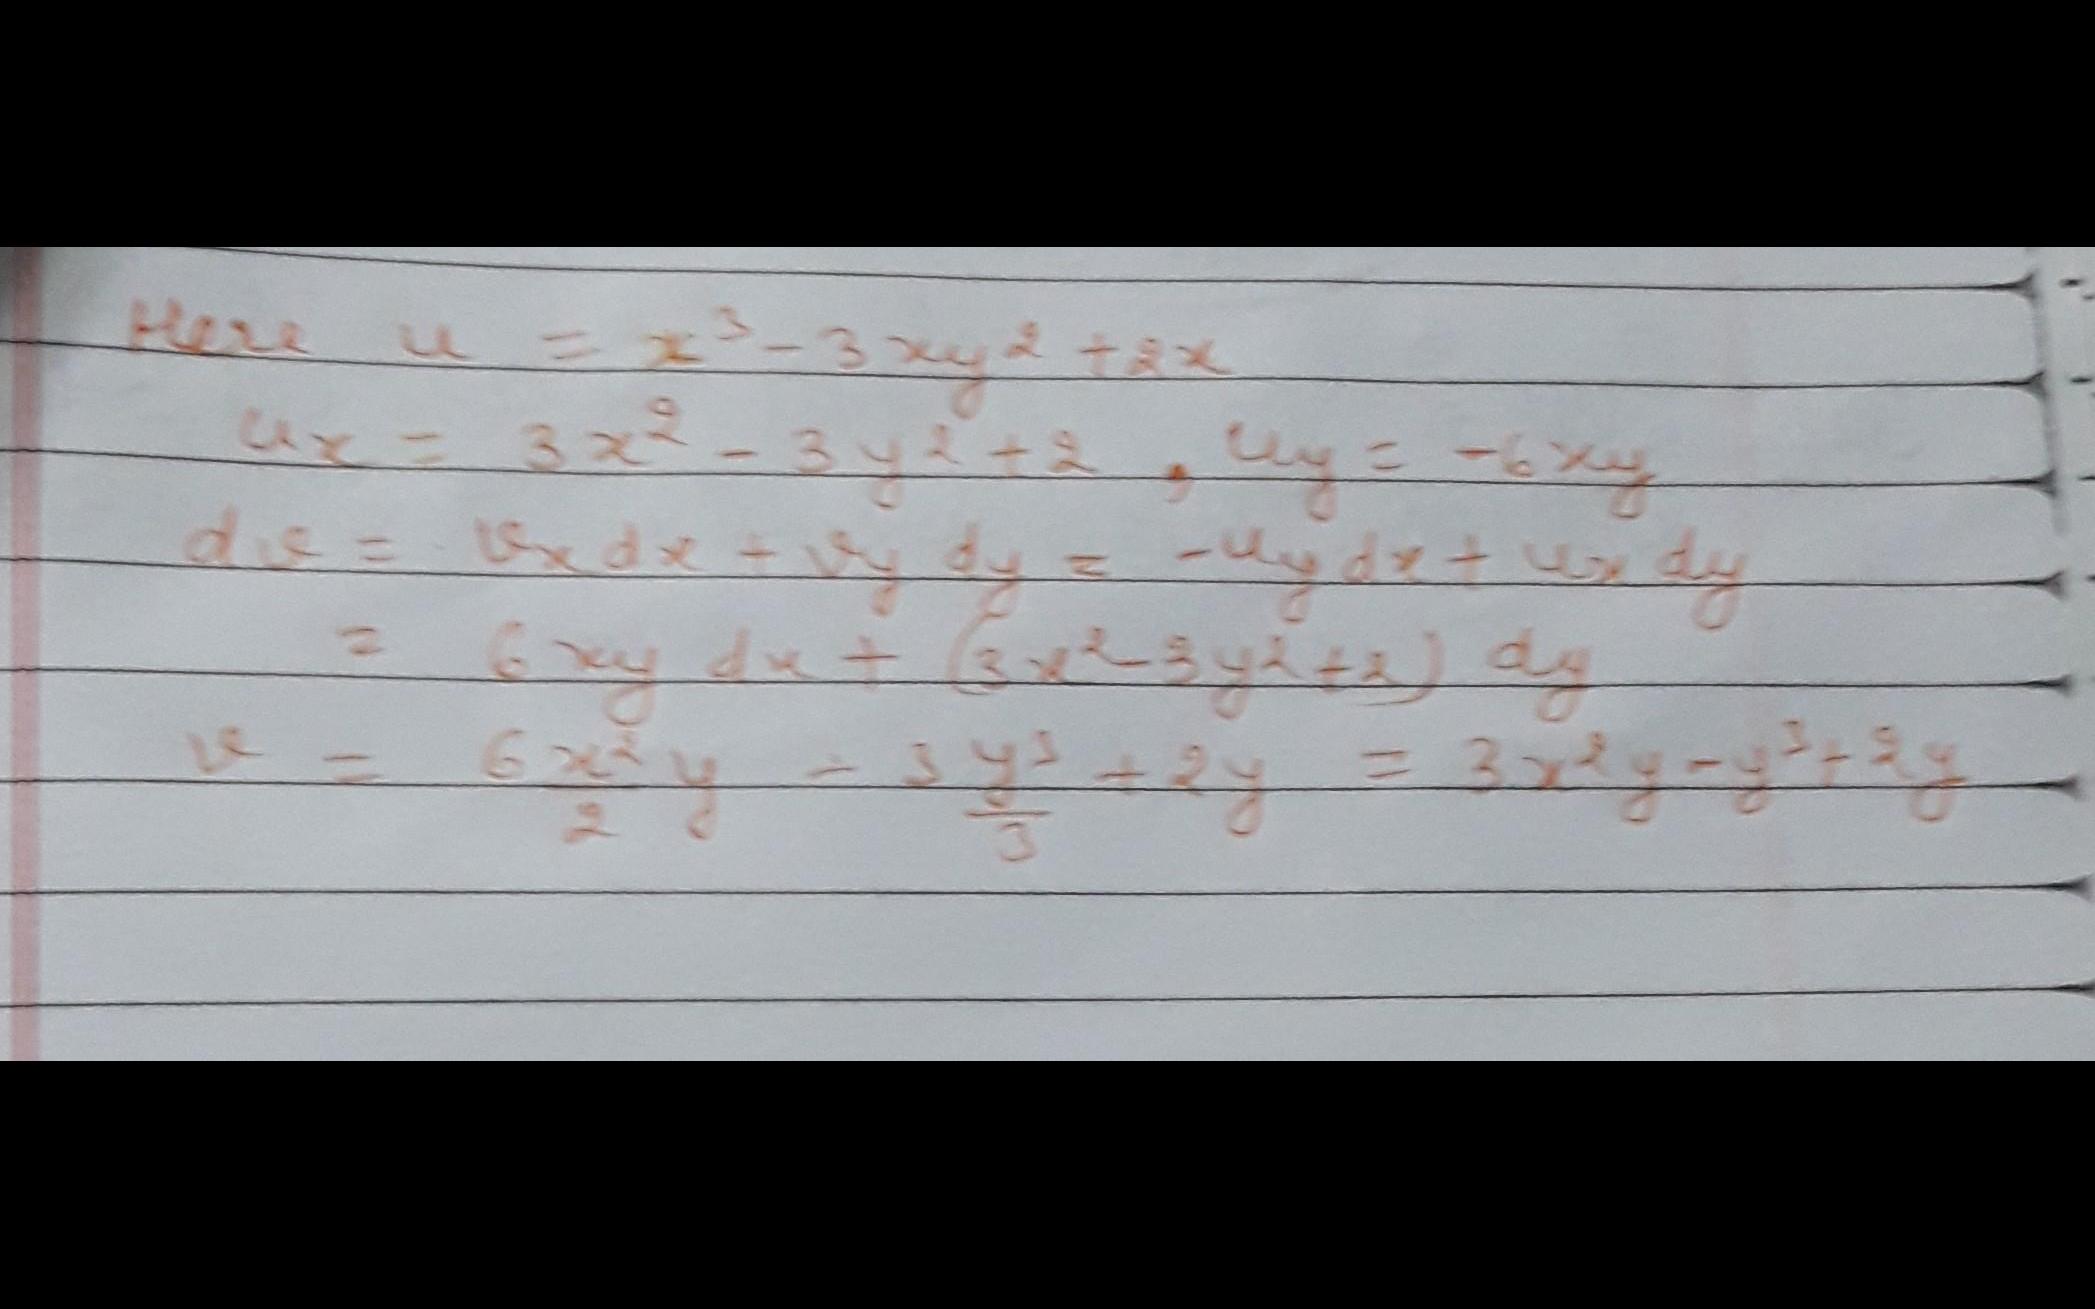 Here u = x³ - 3xy² + 2x
uₓ = 3x² - 3y² + 2 , u_y = -6xy
dv = vₓ dx + v_y dy = -u_y dx + uₓ dy
= 6xy dx + (3x² - 3y² + 2) dy
v = 6 x²/2 y - 3 y³/3 + 2y = 3x²y - y³ + 2y